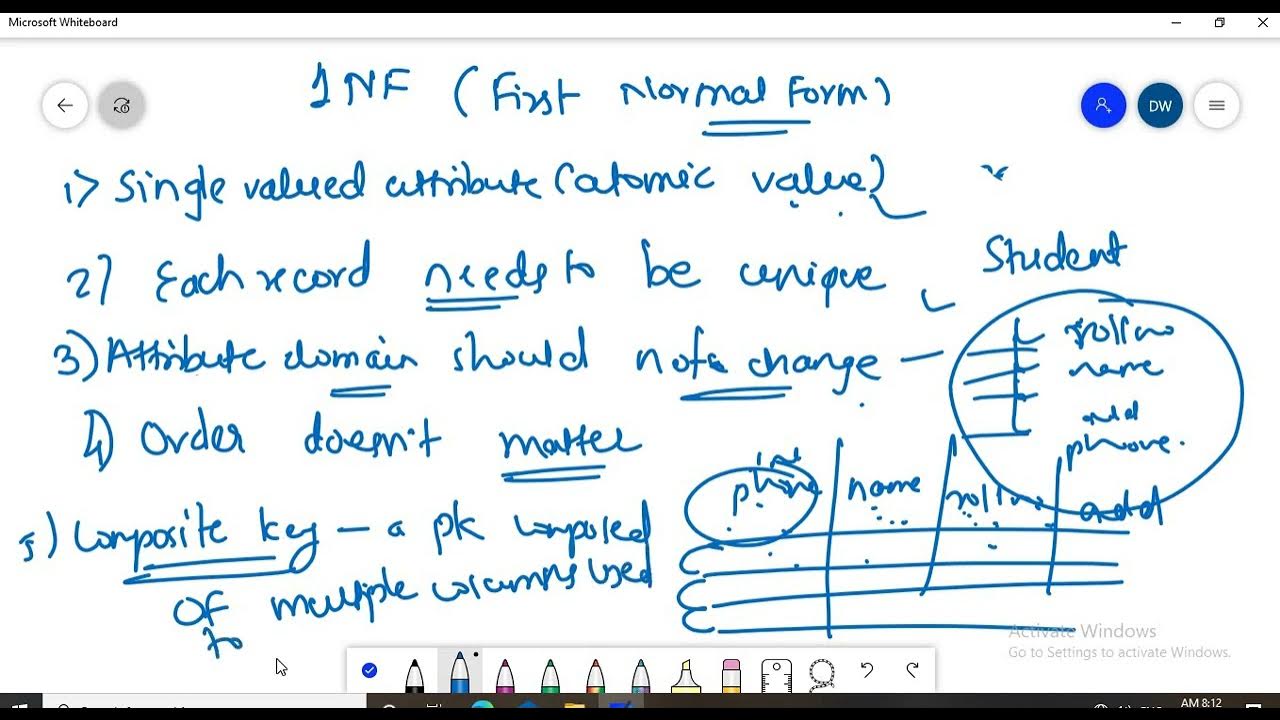 Microsoft Whiteboard
1NF (First Normal Form)
DW
1) Single valued attribute (atomic value)
2) Each record needs to be unique
3) Attribute domain should not change
4) Order doesn't matter
5) Composite key - a pk composed
of multiple columns used
to
Student
rollno
name
add
phone.
int
phone name rollno add
Activate Windows
Go to Settings to activate Windows.
AM 8:12